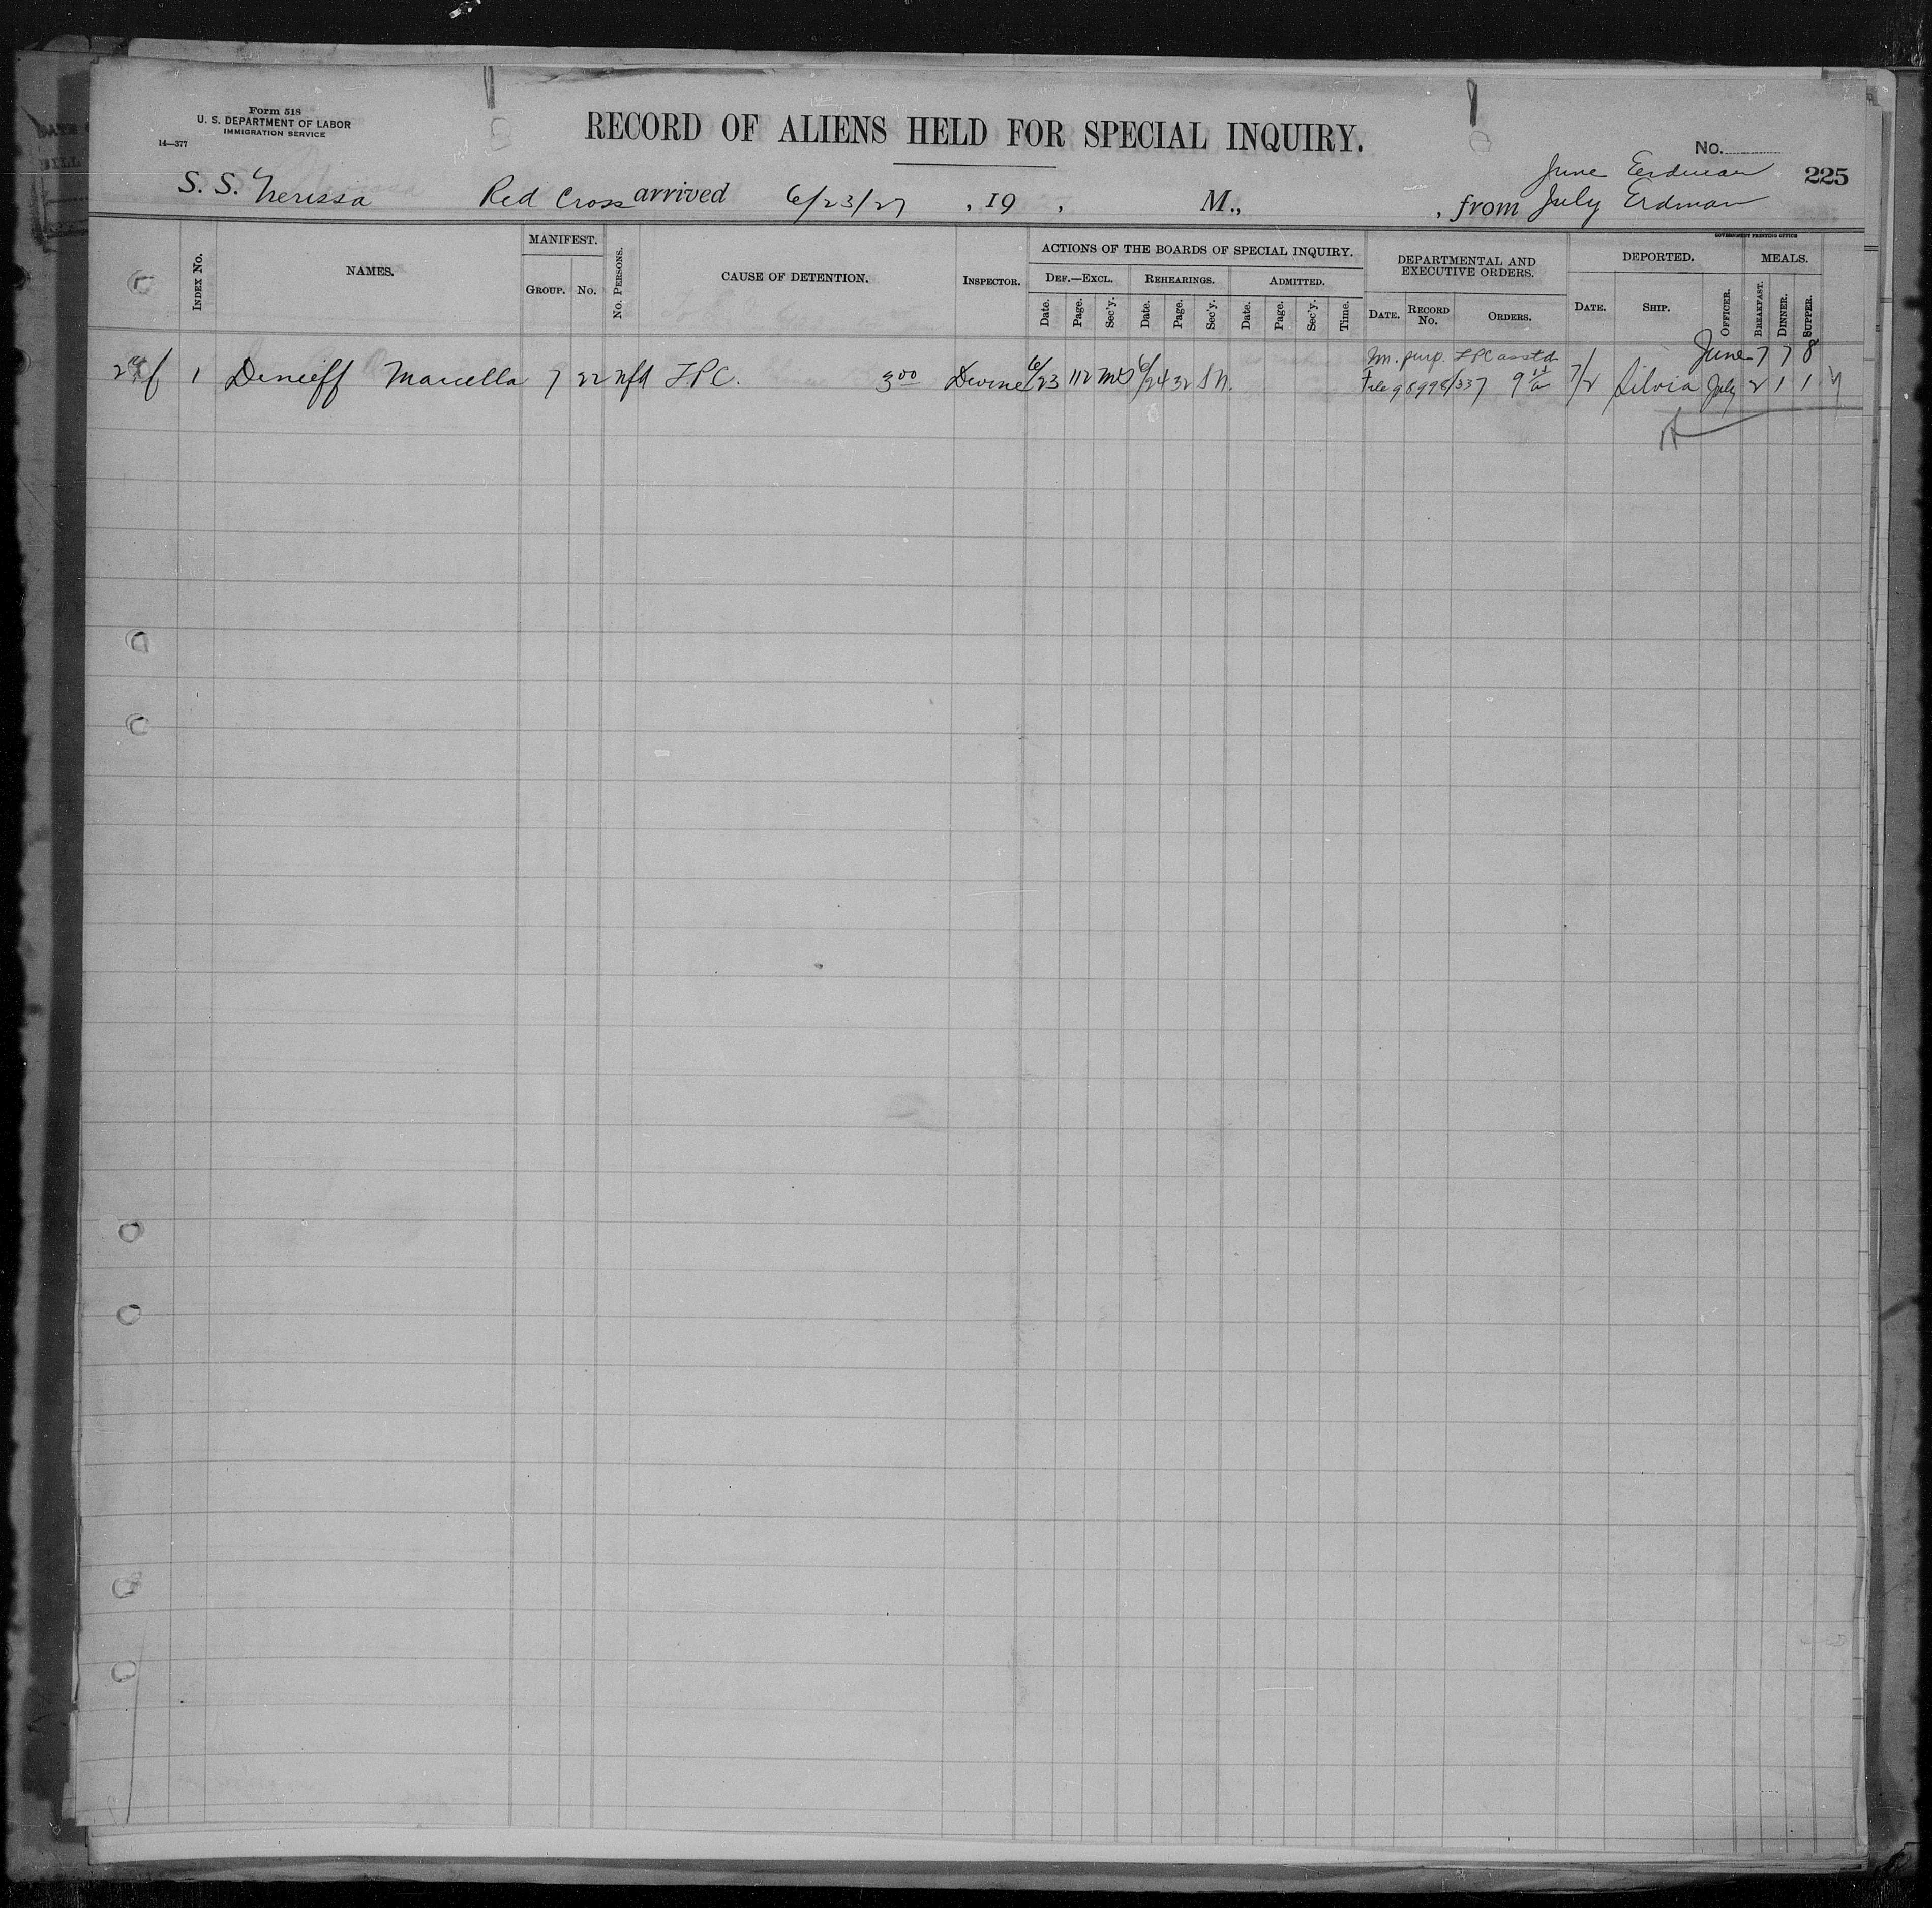 Form 518
U. S. DEPARTMENT OF LABOR
IMMIGRATION SERVICE
14—377
RECORD OF ALIENS HELD FOR SPECIAL INQUIRY.
No.
225
June Erdman
S. S. Nerissa Red Cross arrived 6/23/27, 19 , M., , from July Erdman
GOVERNMENT PRINTING OFFICE
INDEX No.
NAMES.
MANIFEST.
GROUP. No.
No. PERSONS.
CAUSE OF DETENTION.
INSPECTOR.
ACTIONS OF THE BOARDS OF SPECIAL INQUIRY.
DEF.—EXCL. REHEARINGS. ADMITTED.
Date. Page. Sec'y. Date. Page. Sec'y. Date. Page. Sec'y. Time.
DEPARTMENTAL AND
EXECUTIVE ORDERS.
DATE. RECORD No. ORDERS.
DEPORTED.
DATE. SHIP. OFFICER.
MEALS.
BREAKFAST. DINNER. SUPPER.
purp. LPC June 7 7 8
1 Denieff Marcella 7 22 nfd LPC. 3 00 Devine 6/23 112 6/24 32 File 98998/337 7/2 Silvia July 2 1 1